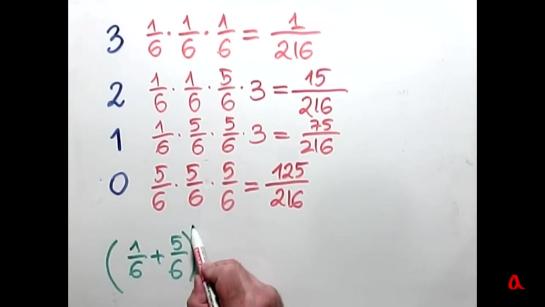 3 1/6 · 1/6 · 1/6 = 1/216
2 1/6 · 1/6 · 5/6 · 3 = 15/216
1 1/6 · 5/6 · 5/6 · 3 = 75/216
0 5/6 · 5/6 · 5/6 = 125/216
(1/6 + 5/6)
a